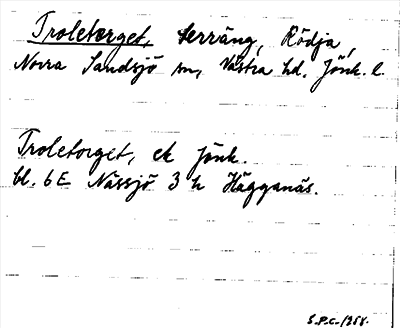 Troletorget, terräng, Rödja,
Norra Sandsjö sn, Västra hd, Jönk. l.
Troletorget, ek Jönk.
bl. 6E Nässjö 3 h Hägganäs.
S.P.C.